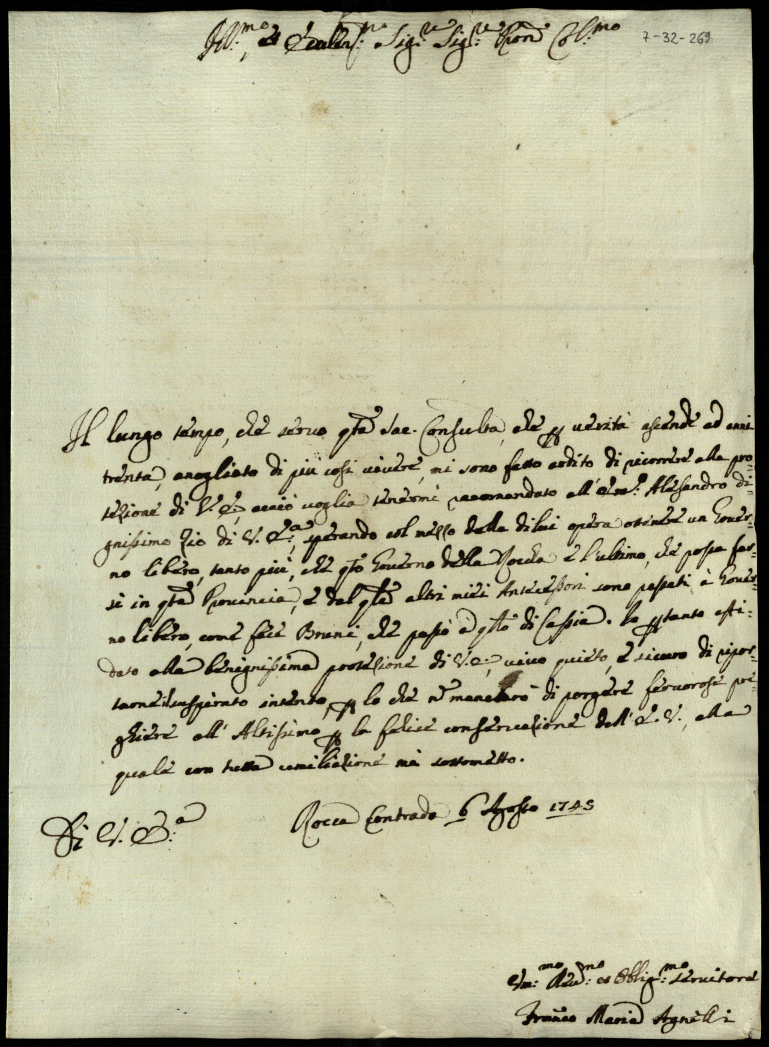 Ill.mo et Eccellen.mo Sig.re Sig.re Pron Col.mo
7-32-269
Il lungo tempo, che servo qta Sac. Consulta, che p verità ascende ad anni
trenta, anogliato di più cosi vivere, mi sono fatto ardito di ricorrere alla pro-
tezione di V. E., acciò voglia tenermi racomandato all' Em.o Alesandro di-
gnissimo Zio di V. E.a, sperando col mezzo della di lui opera otenere un Gover-
no libero, tanto più, che qto Governo della Rocca è l'ultimo, che possa far-
si in qta Provincia, e dal qle altri miei Antecessori sono passati à Gover-
no libero, come fece Bruni, che passò a qllo di Cassia. Io p tanto affi-
dato alla benignissima protezione di V. E., vivo quieto, e sicuro di ripor-
tarne il suspirato intento, p lo che n mancarò di porgere fervorose pre-
ghiere all' Altissimo p la felice conservazione dell' E. V., alla
quale con tutta umiliazione mi sottometto.
Di V. E.a
Rocca Contrada 6 Agosto 1745
mo Dev.mo et Obblig.mo servitore
Franco Maria Agnelli